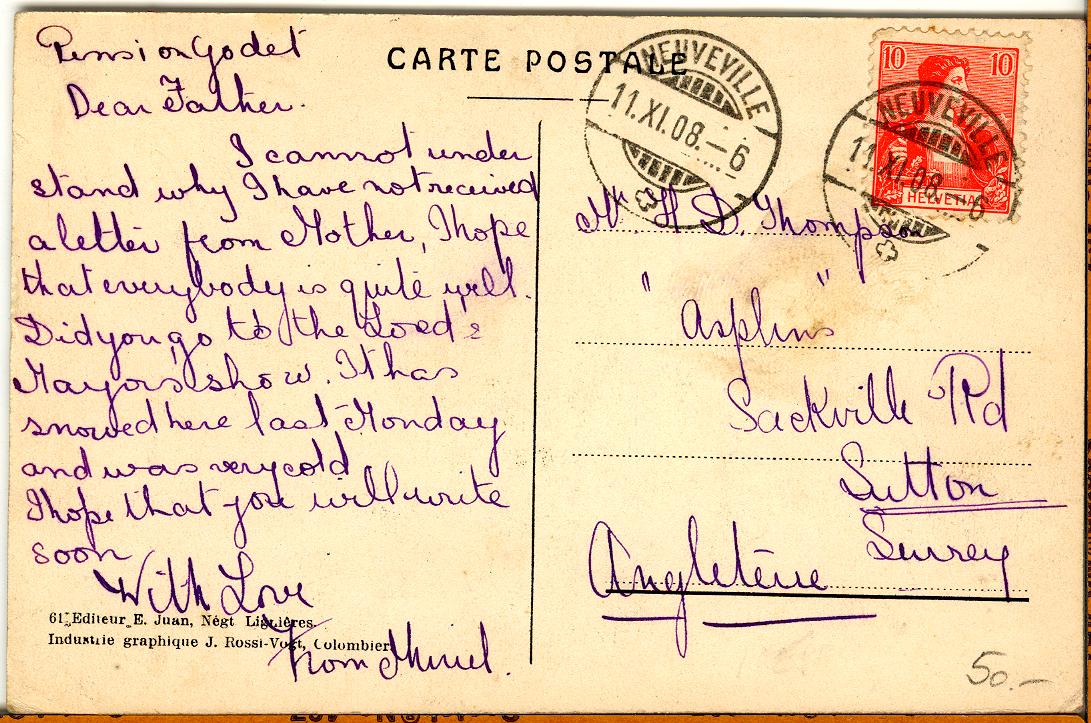 CARTE POSTALE
Pension Godet
Dear Father.
I cannot under
stand why I have not received
a letter from Mother, I hope
that everybody is quite well.
Did you go to the Lord's
Mayor's show. It has
snowed here last Monday
and was very cold
I hope that you will write
soon
With Love
From Muriel.
61. Editeur E. Juan, Négt Lignières.
Industrie graphique J. Rossi-Vogt, Colombier
NEUVEVILLE
11.XI.08.-6
10 10
HELVETIA
NEUVEVILLE
11.XI.08.-6
Mr. H. D. Thompson
" Asplins "
Sackville Rd
Sutton
Surrey
Angleterre
50.-